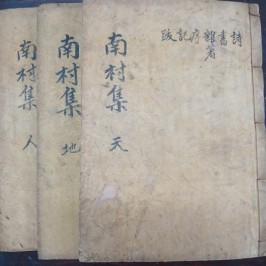 詩書雜著序記跋
南村集 天
南村集 地
南村集 人